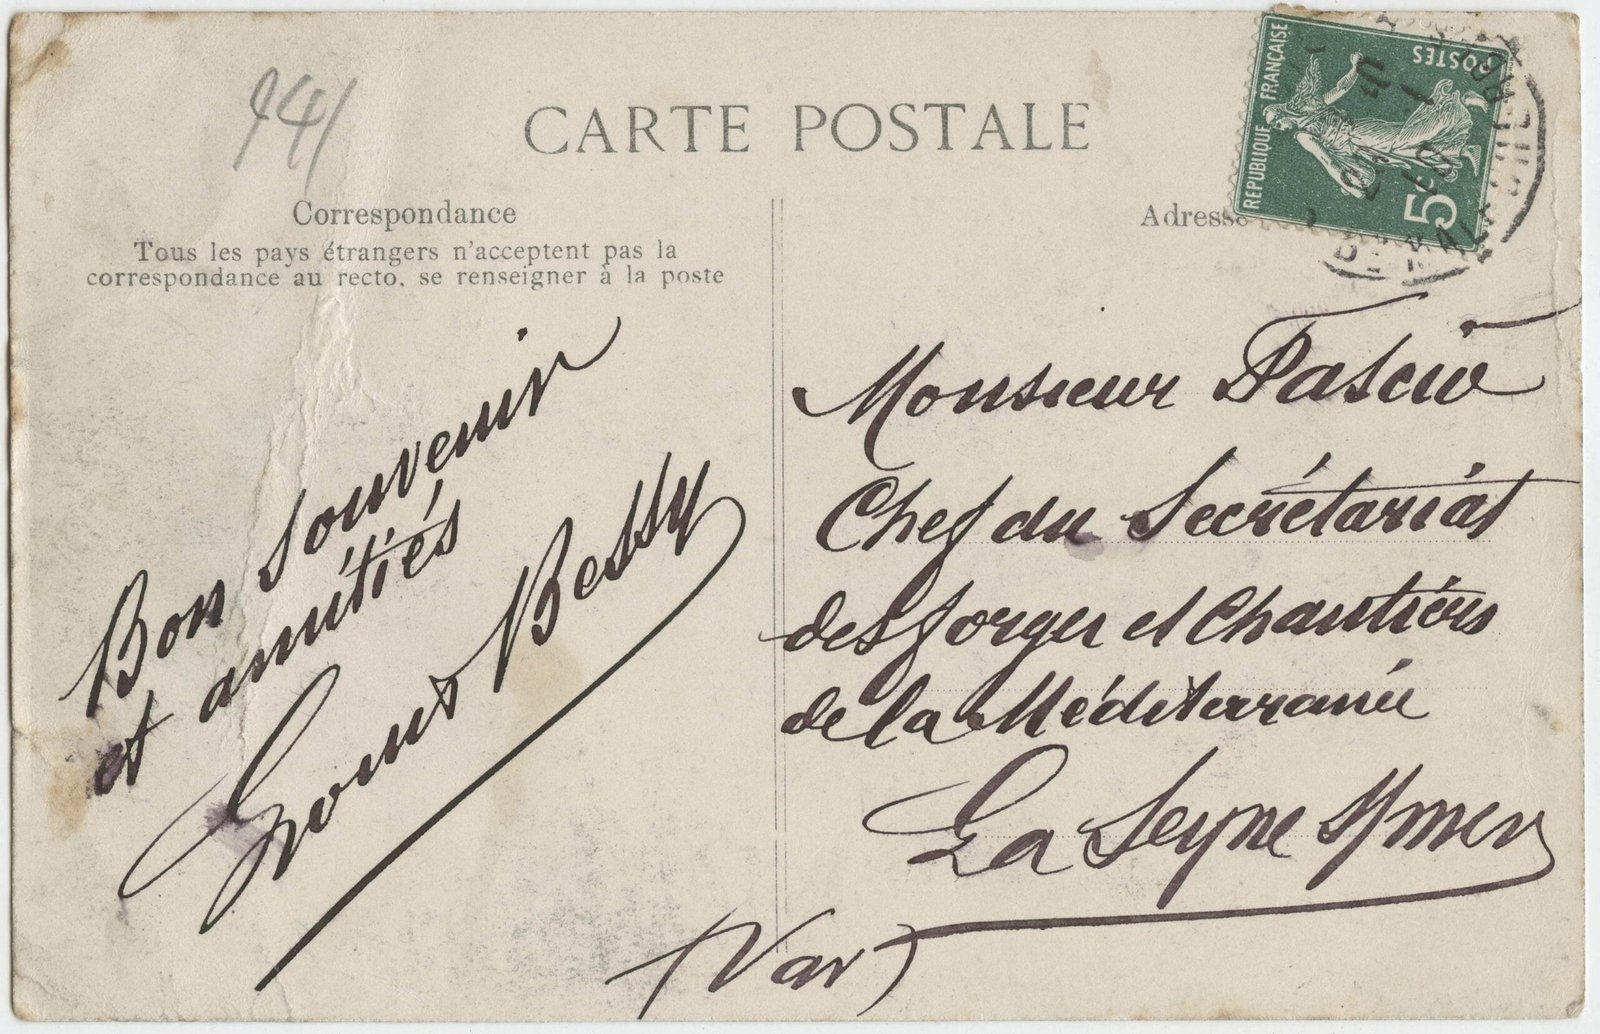 941
CARTE POSTALE
Correspondance
Tous les pays étrangers n'acceptent pas la
correspondance au recto, se renseigner à la poste
Adresse
REPUBLIQUE FRANÇAISE
POSTES
5c
Bon souvenir
et amitiés
Louis Bessy
Monsieur
Chef du Secrétariat
des forges et Chantiers
de la Méditerranée
La Seyne s/mer
(Var)